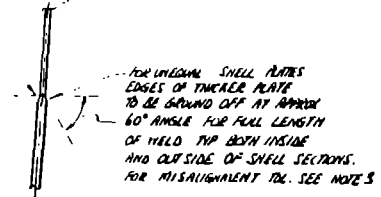 FOR UNEQUAL SHELL PLATES
EDGES OF THICKER PLATE
TO BE GROUND OFF AT APPROX
60° ANGLE FOR FULL LENGTH
OF WELD TYP BOTH INSIDE
AND OUTSIDE OF SHELL SECTIONS.
FOR MISALIGNMENT TOL. SEE NOTE